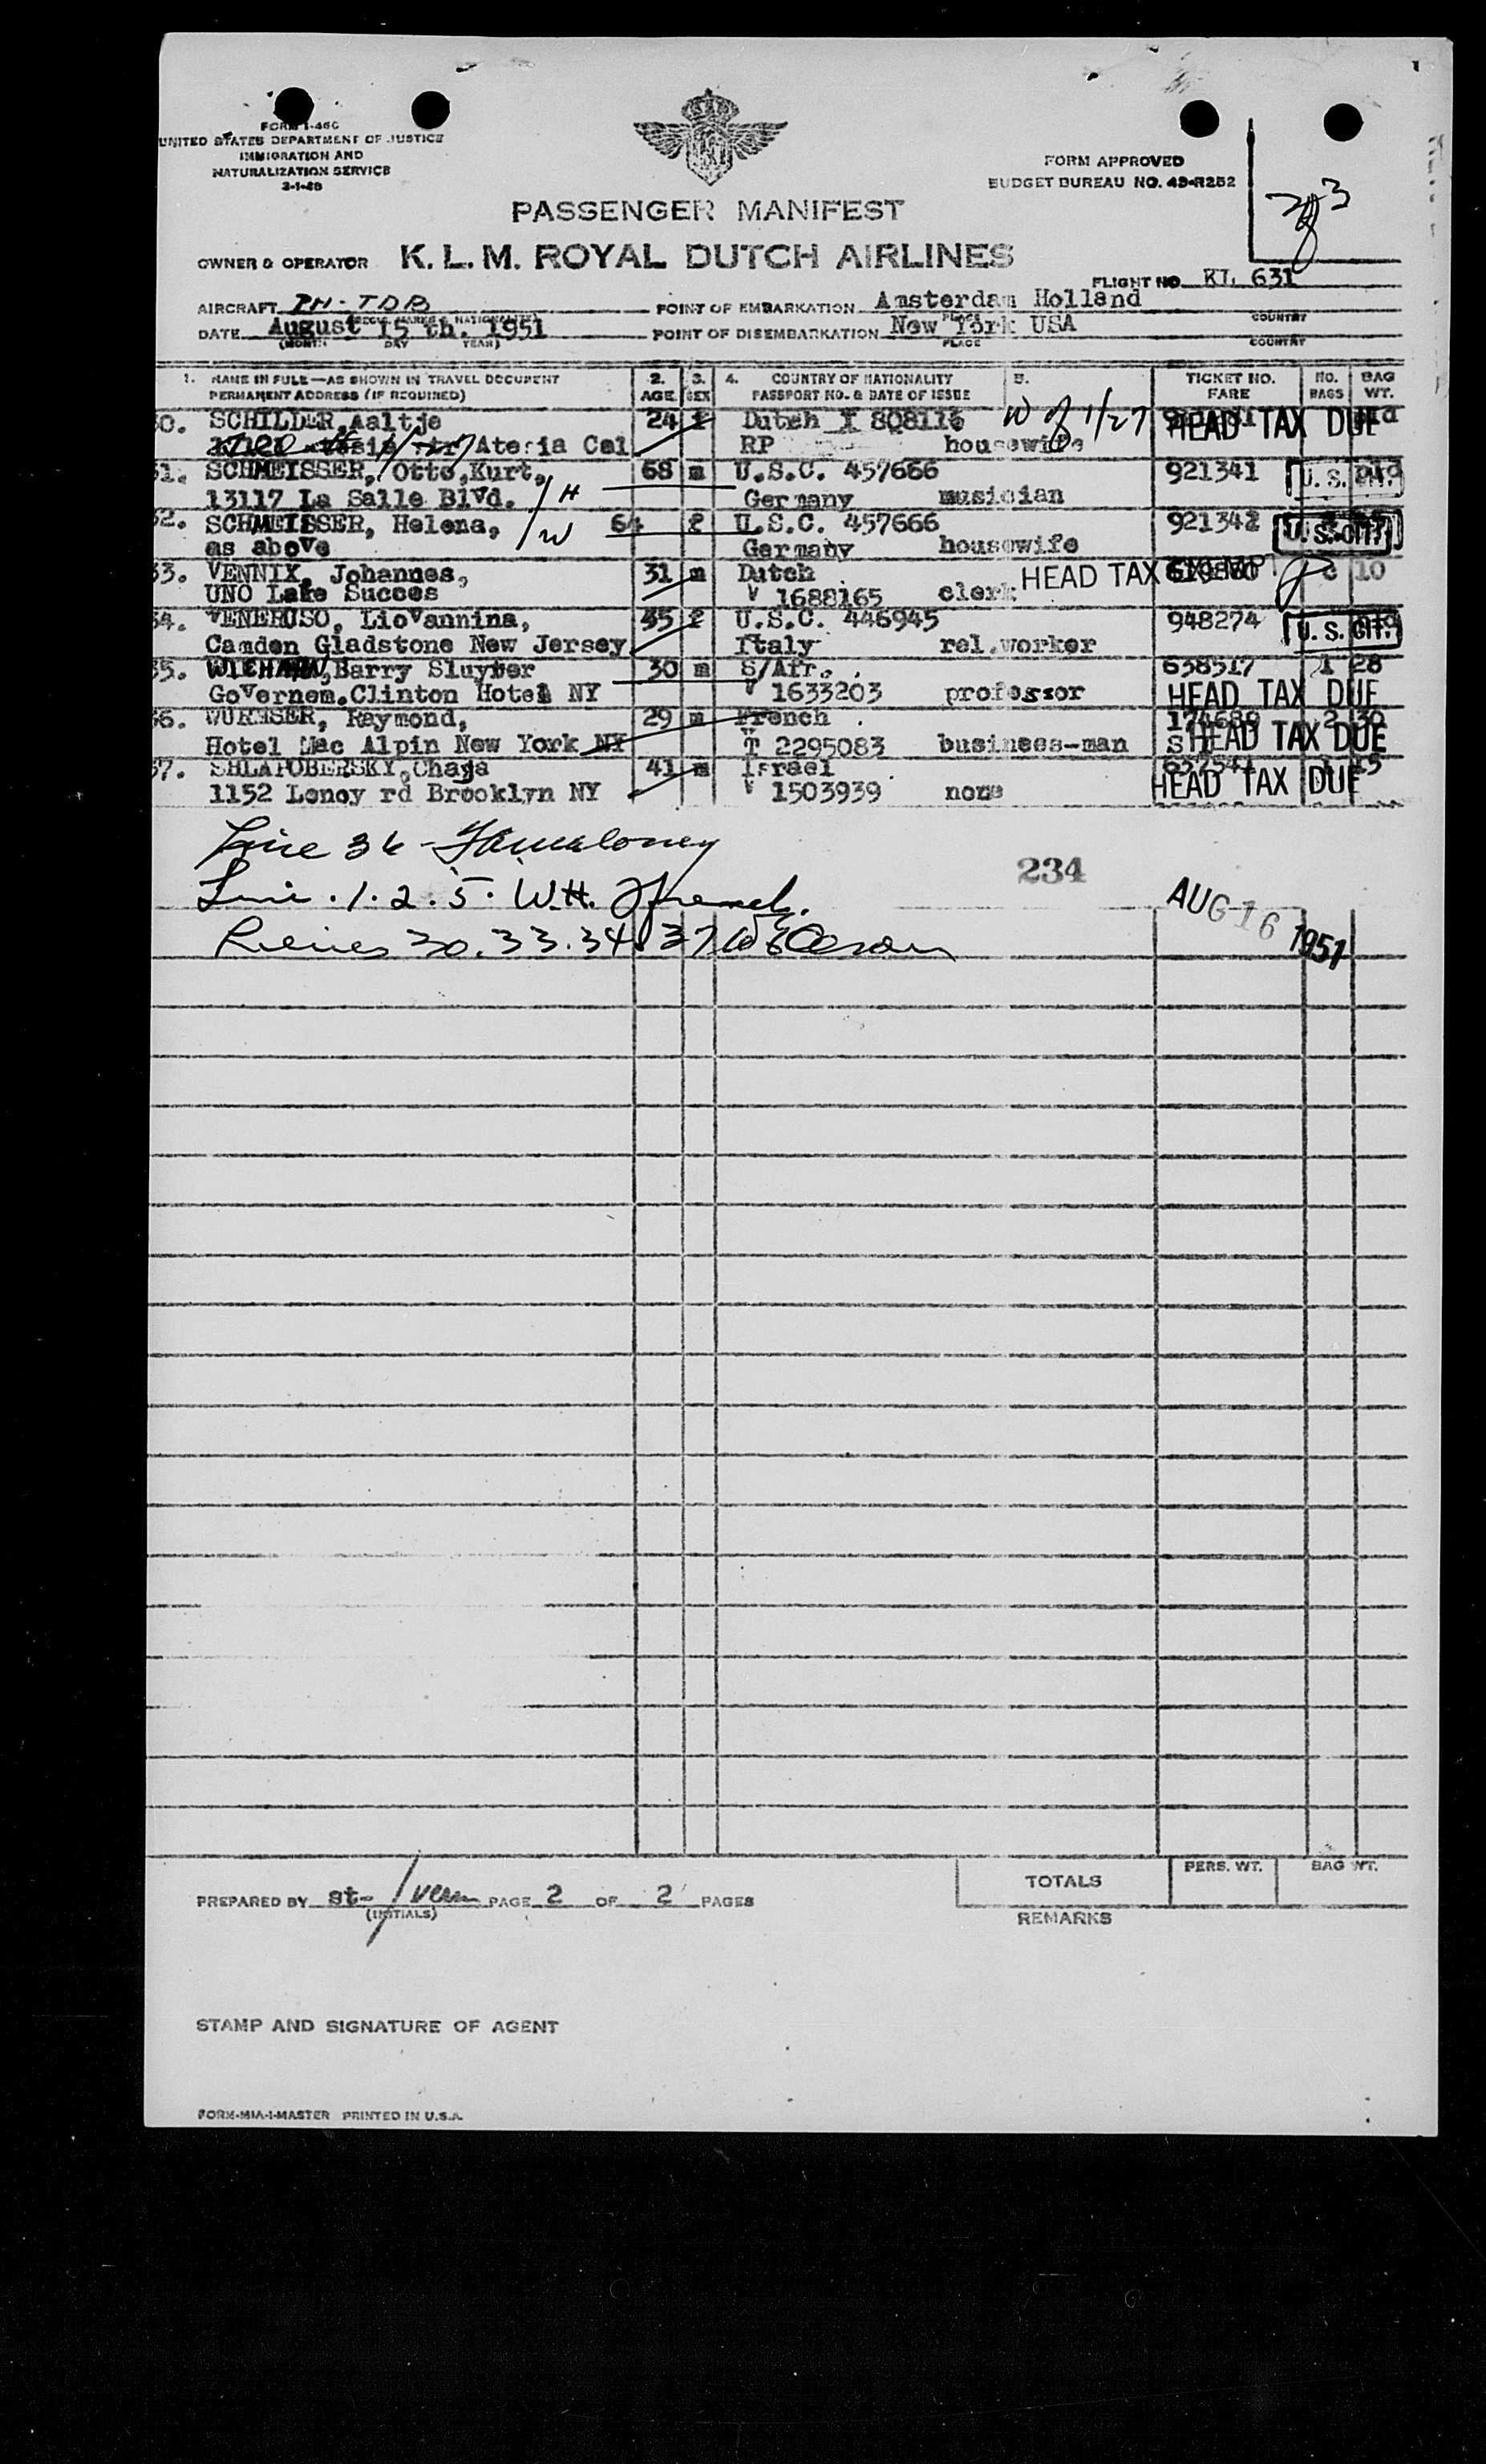 FORM I-466
UNITED STATES DEPARTMENT OF JUSTICE
IMMIGRATION AND
NATURALIZATION SERVICE
FORM APPROVED
BUDGET BUREAU NO. 43-R252
PASSENGER MANIFEST
OWNER & OPERATOR K. L. M. ROYAL DUTCH AIRLINES
FLIGHT NO. KL 631
AIRCRAFT PH-TDB POINT OF EMBARKATION Amsterdam Holland
PLACE COUNTRY
DATE August 15 th. 1951 POINT OF DISEMBARKATION New York USA
(MONTH DAY YEAR) PLACE COUNTRY
1. NAME IN FULL—AS SHOWN IN TRAVEL DOCUMENT 2. 3. 4. COUNTRY OF NATIONALITY 5. TICKET NO. NO. BAG
PERMANENT ADDRESS (IF REQUIRED) AGE SEX PASSPORT NO. & DATE OF ISSUE FARE BAGS WT.
30. SCHILDER, Aaltje 24 f Dutch I 808116 W of 1/27 HEAD TAX DUE
Atesia Cal RP housewife
31. SCHMEISSER, Otto,Kurt, 68 m U.S.C. 457666 921341 U.S. CIT.
13117 La Salle Blvd. /H Germany musician
32. SCHMEISSER, Helena, /W 64 f U.S.C. 457666 921342 U.S. CIT.
as above Germany housewife
33. VENNIX, Johannes, 31 m Dutch HEAD TAX 10
UNO Lake Succes V 1688165 clerk
34. VENERUSO, Liovannina, 45 f U.S.C. 446945 948274 U. S. CIT.
Camden Gladstone New Jersey Italy rel.worker
35. Barry Sluyter 30 m S/Afr. 638517 1 28
Governem.Clinton Hotel NY V 1633203 professor HEAD TAX DUE
36. WURMSER, Raymond, 29 m French 174689 2 30
Hotel Mac Alpin New York NY T 2295083 business-man HEAD TAX DUE
37. SHLAPOBERSKY, Chaya 41 m Israel 15
1152 Lenoy rd Brooklyn NY V 1503939 none HEAD TAX DUE
Line 36 -
234
Line . 1. 2. 5. W.H.
AUG 16 1951
Lines 30. 33. 34. 37
PREPARED BY st- PAGE 2 OF 2 PAGES
(INITIALS)
TOTALS PERS. WT. BAG WT.
REMARKS
STAMP AND SIGNATURE OF AGENT
FORM-MIA-1-MASTER PRINTED IN U.S.A.